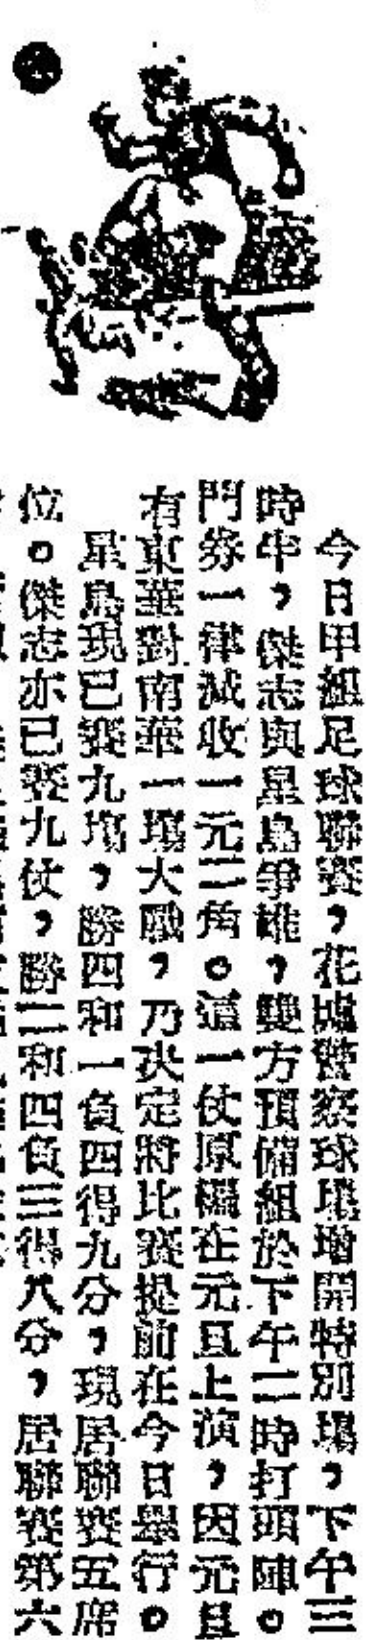 今日甲組足球聯賽，花墟警察球塲增開特別塲，下午三
時半，傑志與星島爭雄，雙方預備組於下午二時打頭陣。
門券一律減收一元二角。這一仗原編在元旦上演，因元旦
有東華對南華一塲大戰，乃決定將比賽提前在今日舉行。
星島現已賽九塲，勝四和一負四得九分，現居聯賽五席
位。傑志亦已賽九仗，勝二和四負三得八分，居聯賽第六